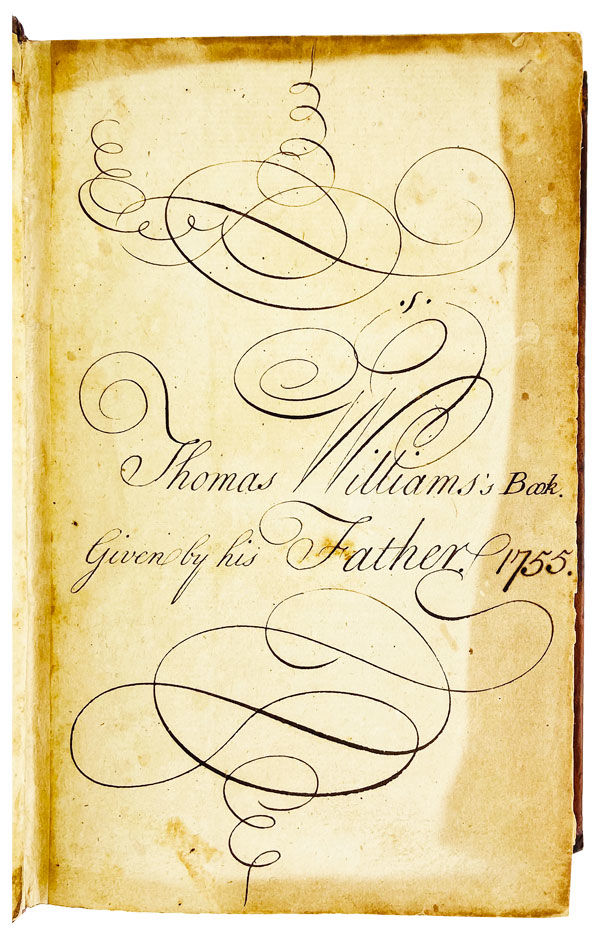 .s.
Thomas Williams's Book.
Given by his Father. 1755.